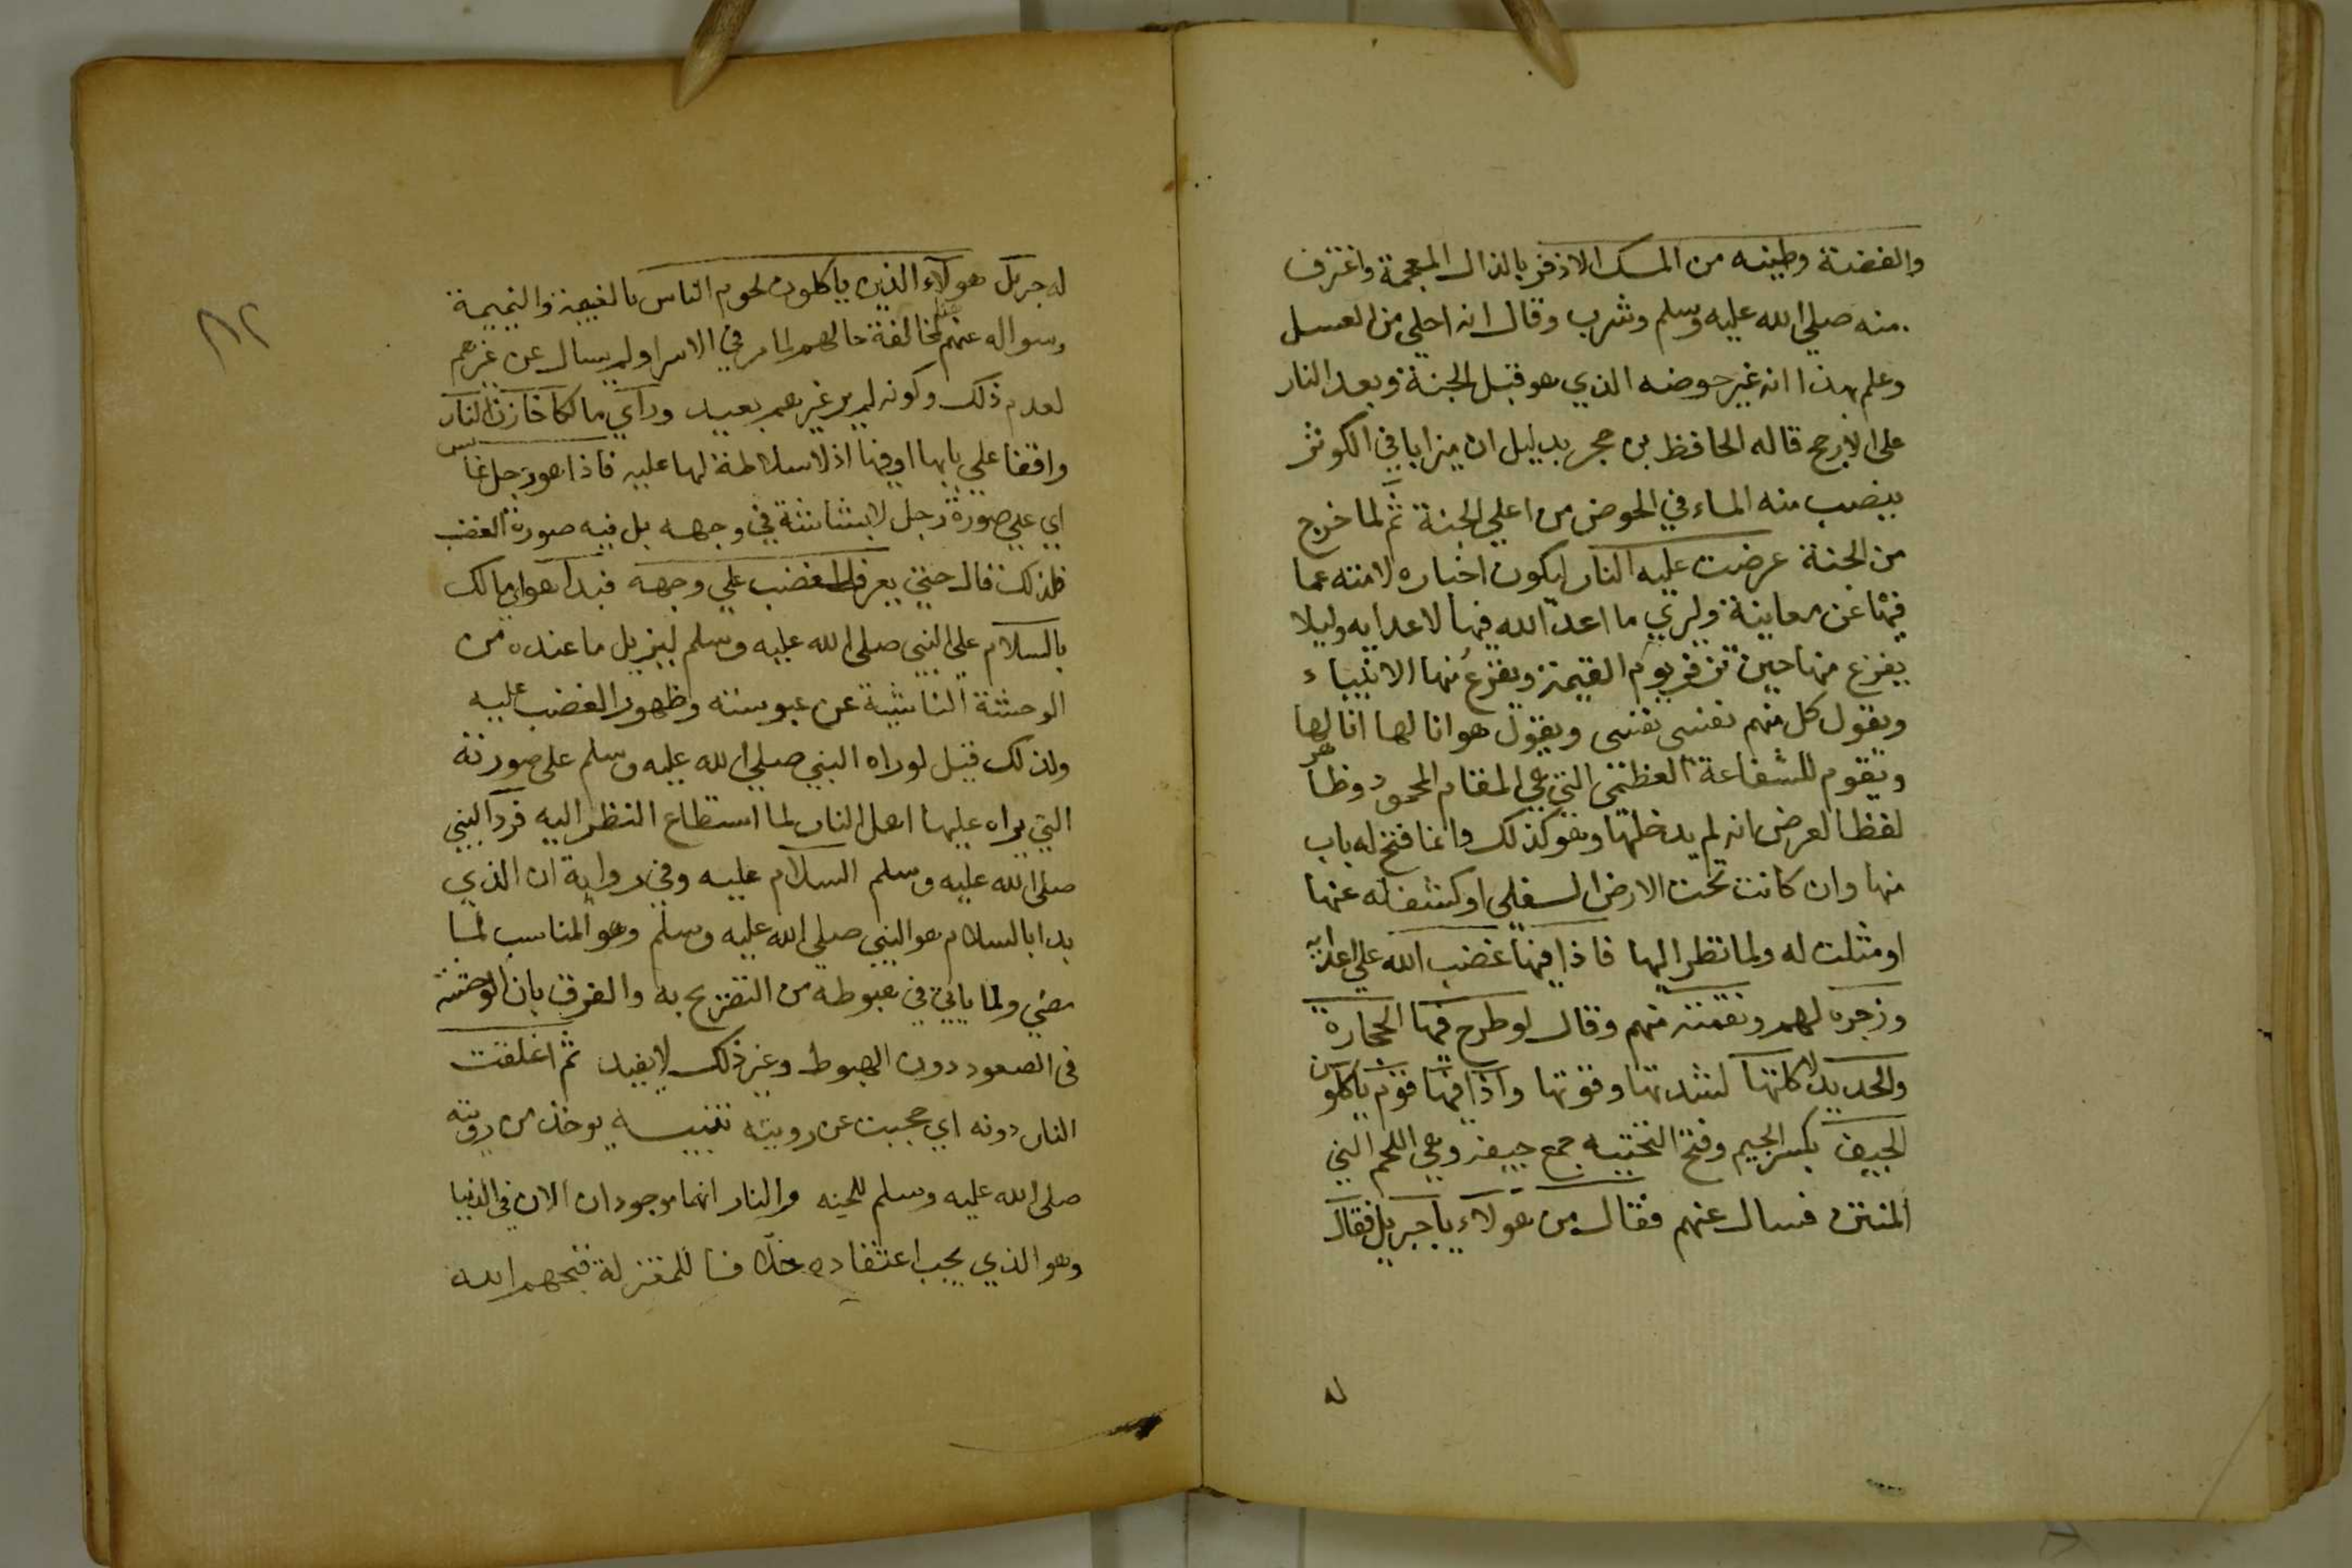 والفضة وطينه من المسك الاذفر بالذال المعجمة واغترف
منه صلي الله عليه وسلم وشرب وقال انه احلي من العسل
وعلم بهذا انه غير حوضه الذي هو قبل الجنة وبعد النار
على الارجح قاله الحافظ بن حجر بدليل ان ميزابا في الكوثر
يصب منه الماء في الحوض من اعلي الجنة ثم لما خرج
من الجنة عرضت عليه النار ليكون اخباره لامته عما
فيها عن معاينة وليري ما اعد الله فيها لاعدايه وليلا
يفزع منها حين تزفر يوم القيمة ويفزع منها الانبياء
ويقول كل منهم نفسي نفسي ويقول هو انا لها انا لها
ويقوم للشفاعة العظمي التي هي المقام المحمود وظاهر
لفظ العرض انه لم يدخلها وهو كذلك وانما فتح له باب
منها وان كانت تحت الارض السفلي او كشف له عنها
او مثلت له ولما نظر اليها فاذا فيها غضب الله علي اعدايه
وزجره لهم ونقمته منهم وقال لو طرح فيها الحجارة
والحديد لاكلتها لشدتها وقوتها واذا فيها قوم ياكلون
الجيف بكسر الجيم وفتح التحتيه جمع جيفه وهي اللحم الني
المنتن فسال عنهم فقال من هولاء يا جبريل فقال
له
٨٢
له جبريل هولاء الذين ياكلون لحوم الناس بالغيبة والنميمة
وسواله عنهم لمخالفة حالهم لما مر في الاسرا ولم يسال عن غيرهم
لعدم ذلك وكونه لم ير غيرهم بعيد وراي مالكا خازن النار
واقفا علي بابها او فيها اذ لا سلاطة لها عليه فاذا هو رجل عابس
اي علي صورة رجل لا بشاشة في وجهه بل فيه صورة الغضب
فلذلك قال حتي يعرف الغضب علي وجهه فبدا هو اي مالك
بالسلام علي النبي صلي الله عليه وسلم ليزيل ما عنده من
الوحشة الناشية عن عبوسته وظهور الغضب عليه
ولذلك قيل لو راه النبي صلي الله عليه وسلم على صورته
التي يراه عليها اهل النار لما استطاع النظر اليه فرد النبي
صلي الله عليه وسلم السلام عليه وفي رواية ان الذي
بدا بالسلام هو النبي صلي الله عليه وسلم وهو المناسب لما
مضي ولما ياتي في هبوطه من التصريح به والفرق بان الوحشة
في الصعود دون الهبوط وغير ذلك لا يفيد ثم اغلقت
النار دونه اي حجبت عن رويته تنبيه يوخذ من رويته
صلي الله عليه وسلم للجنه والنار انهما موجودان الان في الدنيا
وهو الذي يجب اعتقاده خلافا للمعتزلة قبحهم الله